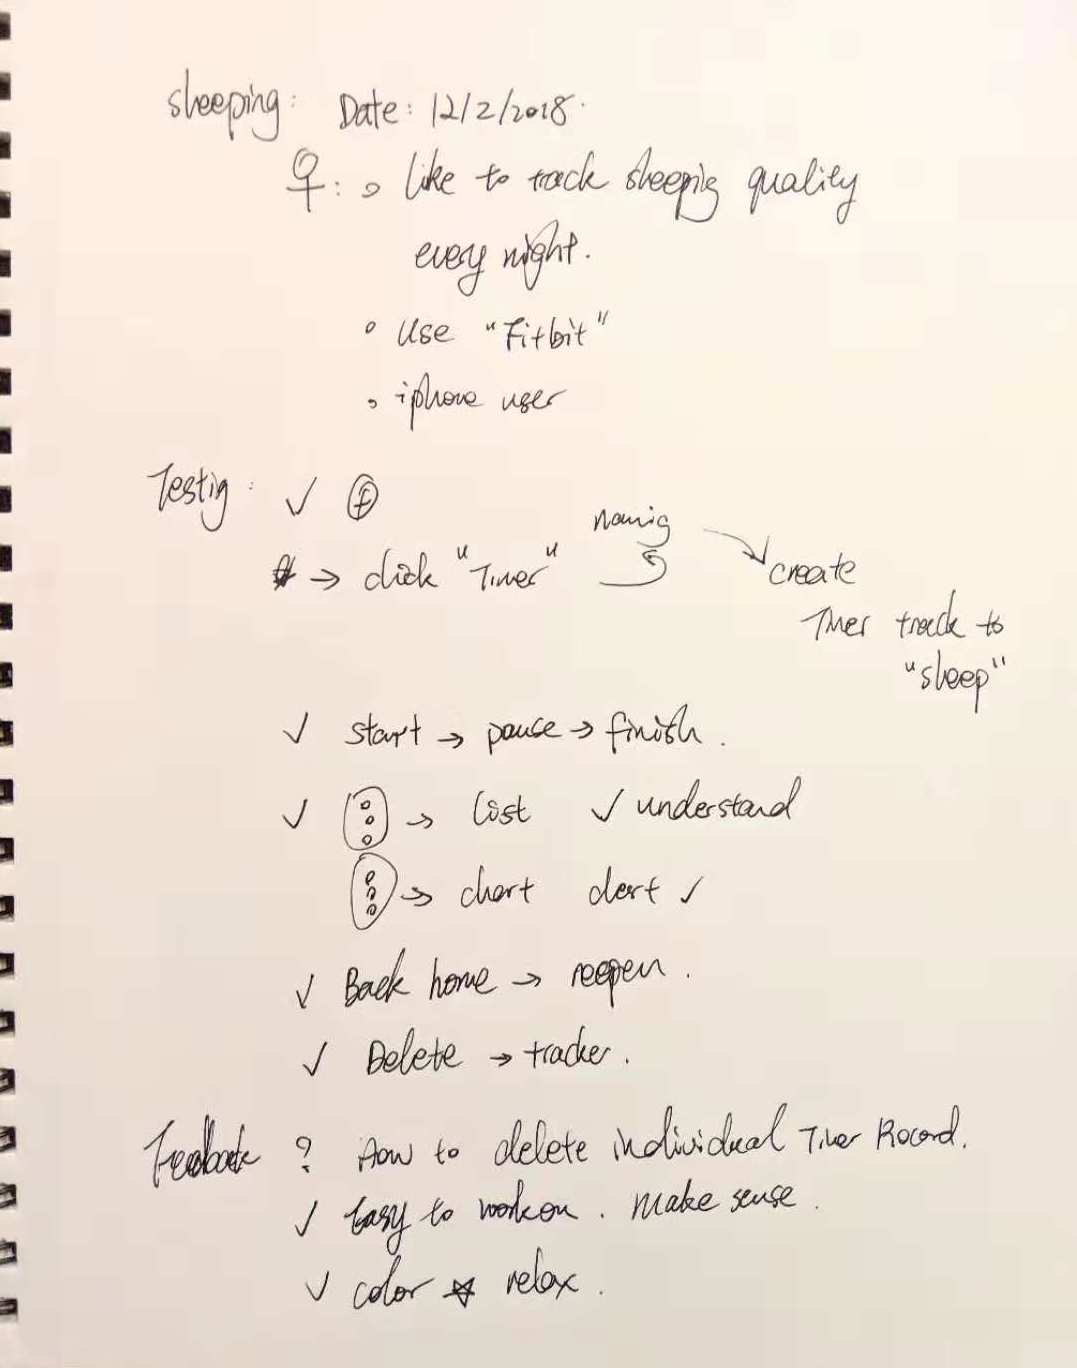 sleeping: Date: 12/2/2018.
♀: ◦ like to track sleeping quality
every night.
◦ Use "Fitbit"
◦ iphone user
Testig: ✓ ⊕
→ click "Timer"
Namig
create
Timer track to
"sleep"
✓ start → pause → finish.
✓ → list ✓ understand
→ chart ✓
✓ Back home → reopen.
✓ Delete → tracker.
Feedback ? How to delete individual Timer Record.
✓ Easy to work on. Make sense.
✓ color ☆ relax.